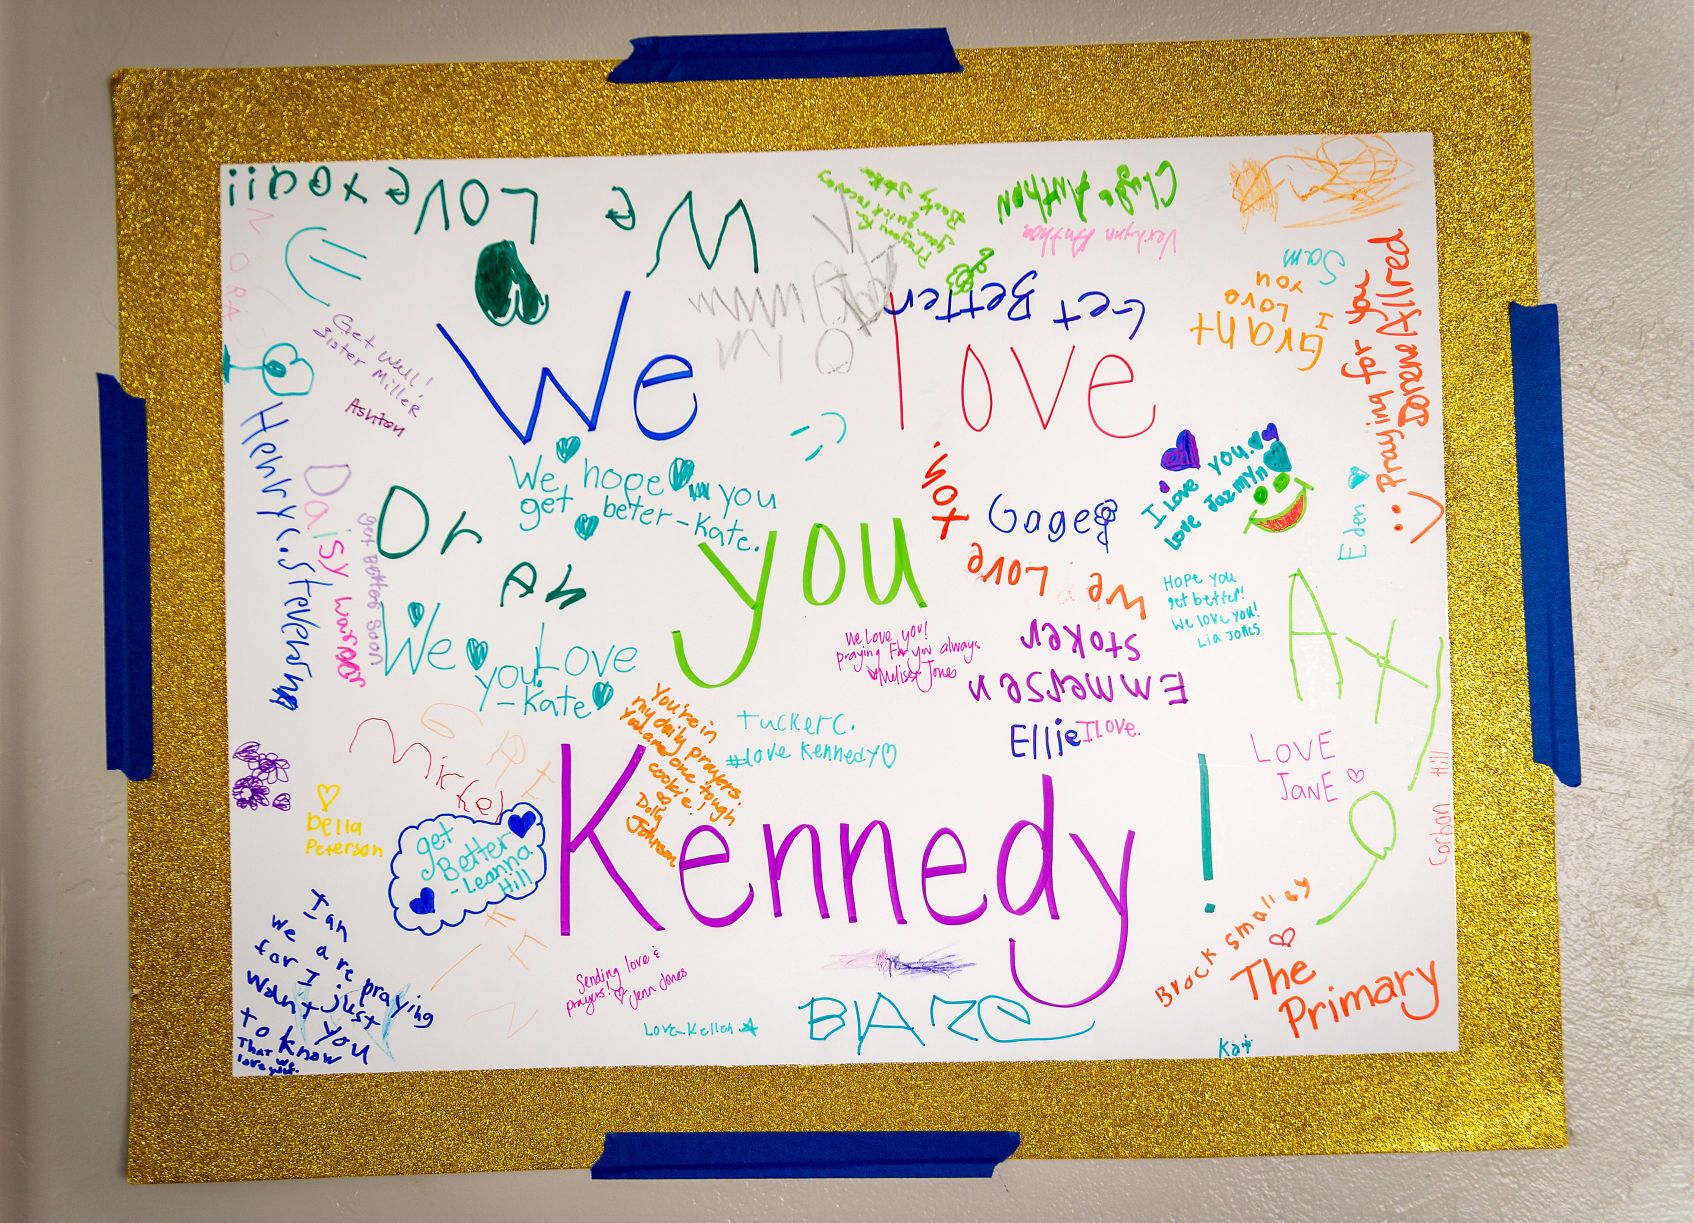 We love
you
Kennedy!
We LOVE
Get Better
Clyde Anthon
Verilynn Anthon
Praying for
your quick recovery
Becky Stoker
Sam
Grant
I
LOVE
YOU
Praying for you
Danane Allred
NORA
Get Well!
Sister Miller
Ashton
Henry C. Stevenson
Daisy Warner
get Better soon
We hope you
get beter-Kate.
We Love
you!
-Kate
We LOVE
you!
Gage
I Love You!
Love Jazmyn
Eden
HOPE YOU
get better!
We love you!
Lia Jones
We Love you!
praying For you always
Melissa Jones
Emmersen
Stoker
Ellie
I Love.
Tucker C.
#Love Kennedy
You're in
my daily prayers.
You are one tough
cookie!
Johnson
Mickel
bella
Peterson
get
Better
-Leanna
Hill
LOVE
JANE
Corbon Hill
Brock Smalley
The
Primary
I ah
we are praying
for I just
want you
to know
That we
love you.
Sending love &
prayers! Jenn Jones
Love-Kellen
BlAZe